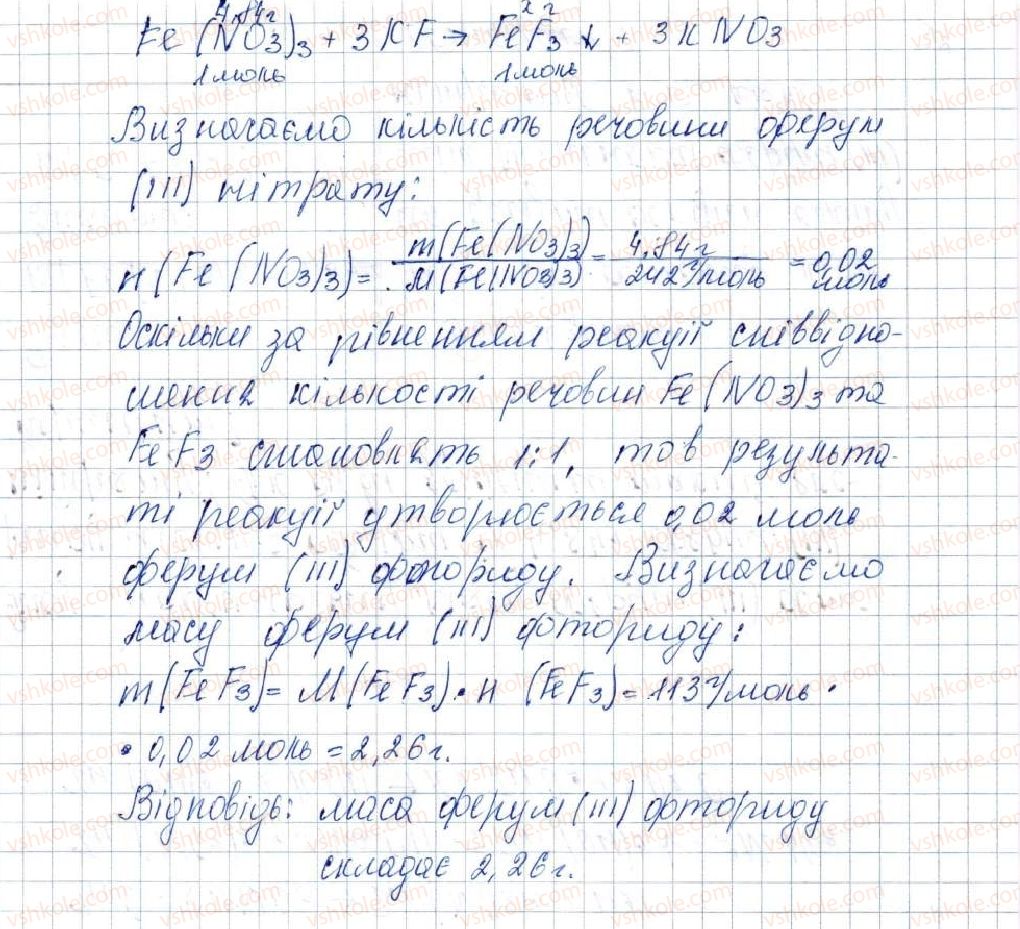 4,84г х г
Fe(NO3)3 + 3KF → FeF3↓ + 3KNO3
1моль 1моль
Визначаємо кількість речовини ферум
(III) нітрату:
n(Fe(NO3)3) = m(Fe(NO3)3) / M(Fe(NO3)3) = 4,84г / 242г/моль = 0,02 моль
Оскільки за рівненням реакції співвідно-
шення кількості речовин Fe(NO3)3 та
FeF3 становлять 1:1, то в результа-
ті реакції утворюється 0,02 моль
ферум (III) фториду. Визначаємо
масу ферум (III) фториду:
m(FeF3) = M(FeF3) • n (FeF3) = 113г/моль •
• 0,02 моль = 2,26г.
Відповідь: маса ферум (III) фториду
складає 2,26г.
vshkole.com